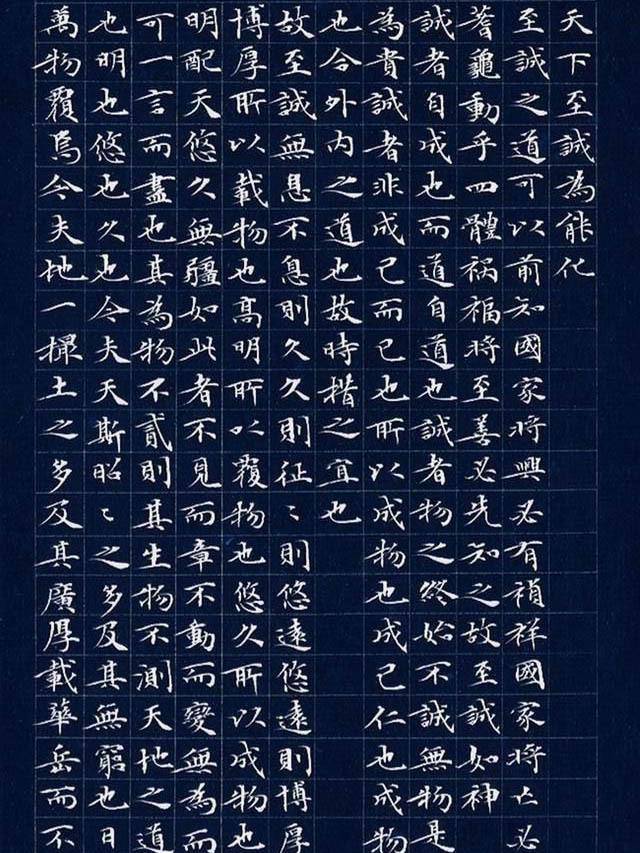 天下至誠為能化
至誠之道可以前知國家將興必有禎祥國家將亡必
蓍龜動乎四體祸福將至善必先知之故至誠如神
誠者自成也而道自道也誠者物之終始不誠無物是
為貴誠者非成己而已也所以成物也成己仁也成物
也合外内之道也故時措之宜也
故至誠無息不息則久久則征〻則悠遠悠遠則博厚
博厚所以載物也高明所以覆物也悠久所以成物也
明配天悠久無疆如此者不見而章不動而變無為而
可一言而盡也其為物不貳則其生物不測天地之道
也明也悠也久也今夫天斯昭〻之多及其無窮也日
萬物覆焉今夫地一撮土之多及其廣厚載華岳而不